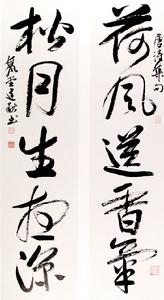 唐詩集句
荷風送香氣
松月生夜涼